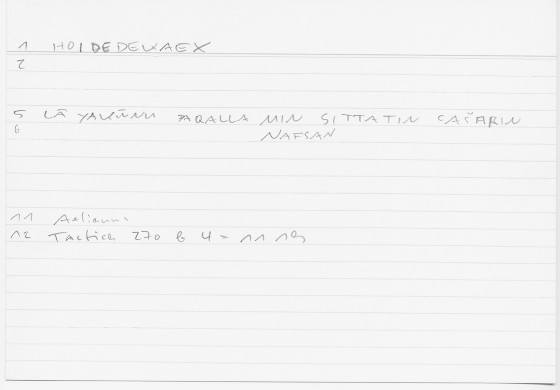 1 HOI DE DEUAEX
2
5 LĀ YAKŪNU AQALLA MIN SITTATIN CAŠARIN
6 NAFSAN
11 Aelianus
12 Tactica 270 b 4 - 11 19